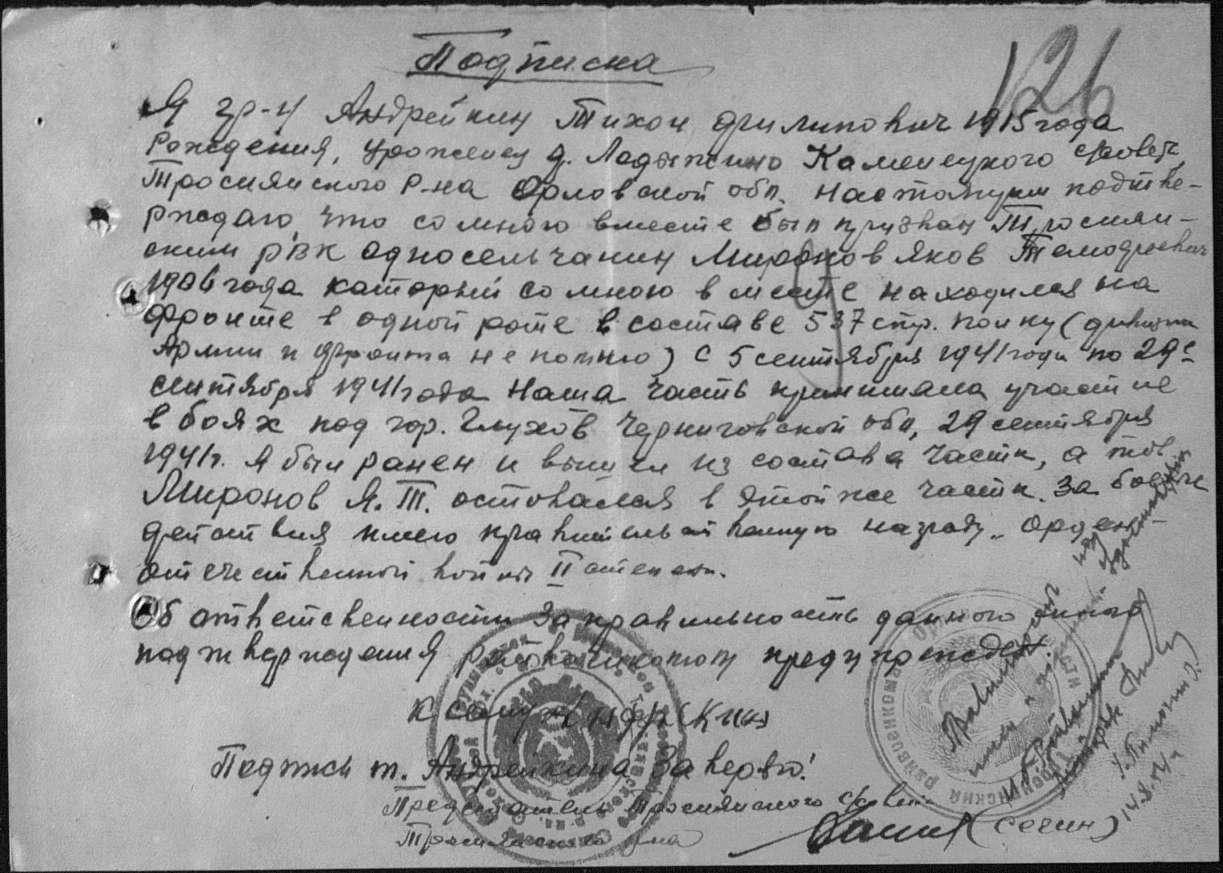 126
Подписка
Я гр-н Андрейкин Тихон Филипович 1915 года
рождения, уроженец д. Ладыжино Каменецкого с/совета
Тросянского р-на Орловской обл. настоящим подтве-
рждаю, что со мною вместе был призван Тросян-
ским РВК односельчанин Миронов Яков
1906 года каторый со мною в месте находился на
фронте в одной роте в составе 537 стр. полку (дивизии
Армии и фронта не помню) с 5 сентября 1941 года по 29е
сентября 1941 года наша часть принимала участие
в боях под гор. Глухов Черниговской обл, 29 сентября
1941 г. я был ранен и вышел из состава части, а тов.
Миронов Я. Т. оставался в этой же части. За боевые
действия имею правительственную награду орден-
отечественный войны II степени.
Об ответственности за правильность данного
подтверждения предупрежден
К сему
Подпись т. Андрейкина Заверяю!
Председатель Тросянского с/совета
(Сечин)